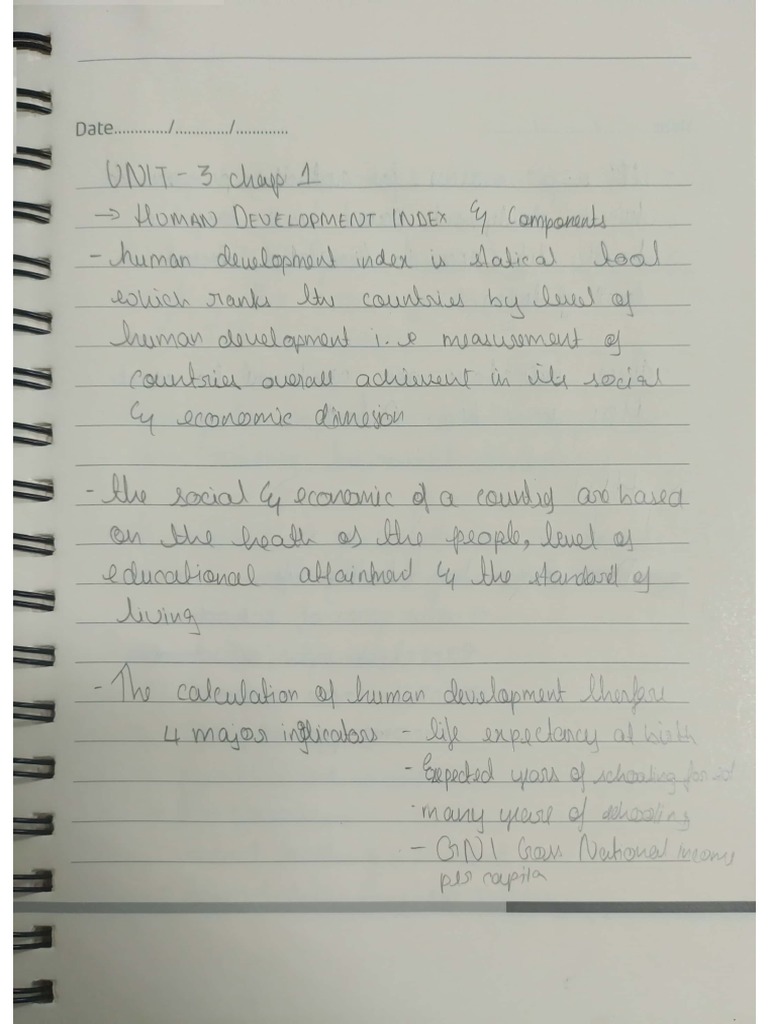 Date............./............./.............
UNIT - 3 chap 1
→ HUMAN DEVELOPMENT INDEX & Components
- human development index is statical tool
which ranks the countries by level of
human development i.e measurement of
countries overall achievent in its social
& economic dimnesion
- the social & economic of a country are based
on the heath of the people, level of
educational attainmed & the standard of
living
- The calculation of human development therfore
4 major indicators - life expectancy at birth
- Expected years of schooling for
many years of schooling
- GNI Gross National income
per capita